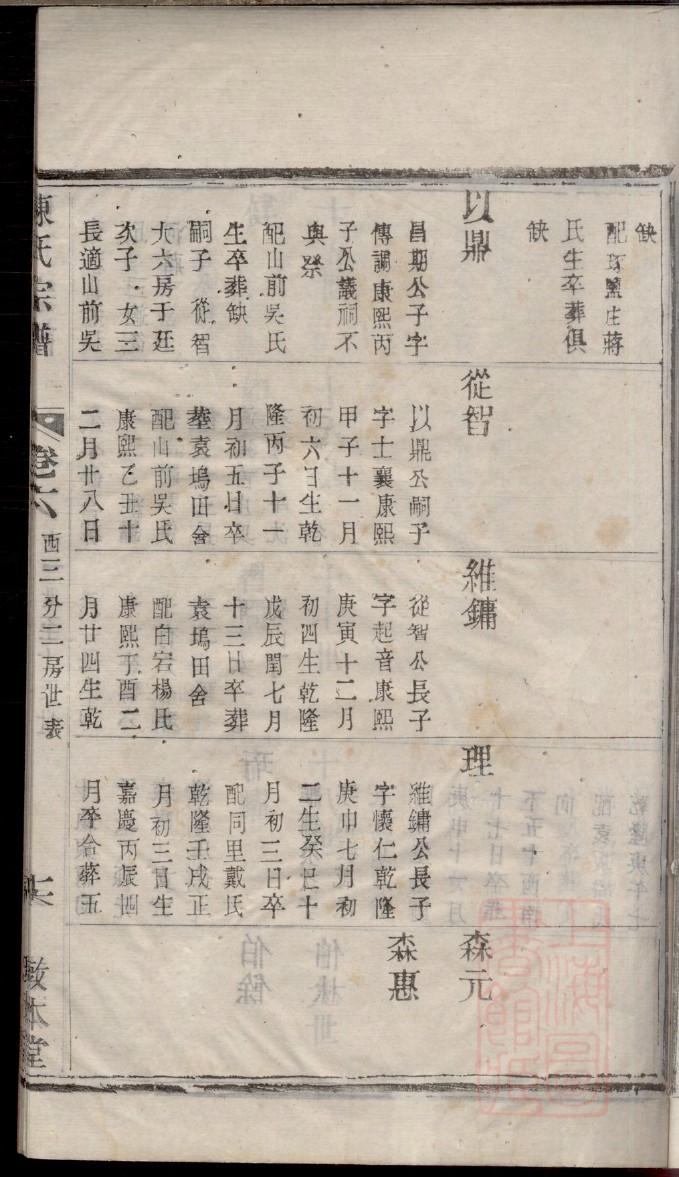 缺
配巧鹽庄蔣
氏生卒葬俱
缺
以鼎
昌期公子字
傳調康熙丙
子公議祠不
與祭
配山前吳氏
生卒葬缺
嗣子從智
大六房于廷
次子女三
長適山前吳
從智
以鼎公嗣子
字士襄康熙
甲子十一月
初六日生乾
隆丙子十一
月初五日卒
葬袁塢田舍
配山前吳氏
康熙乙丑十
二月廿八日
維鏞
從智公長子
字起音康熙
庚寅十二月
初四生乾隆
戊辰閏七月
十三日卒葬
袁塢田舍
配白宕楊氏
康熙丁酉二
月廿四生乾
理
維鏞公長子
字懷仁乾隆
庚申七月初
二生癸巳十
月初三日卒
配同里戴氏
乾隆壬戌正
月初三日生
嘉慶丙辰四
月卒合葬五
森元
森惠
陳氏宗譜
卷六
西三分二房世表
敦本堂
上海圖書館藏